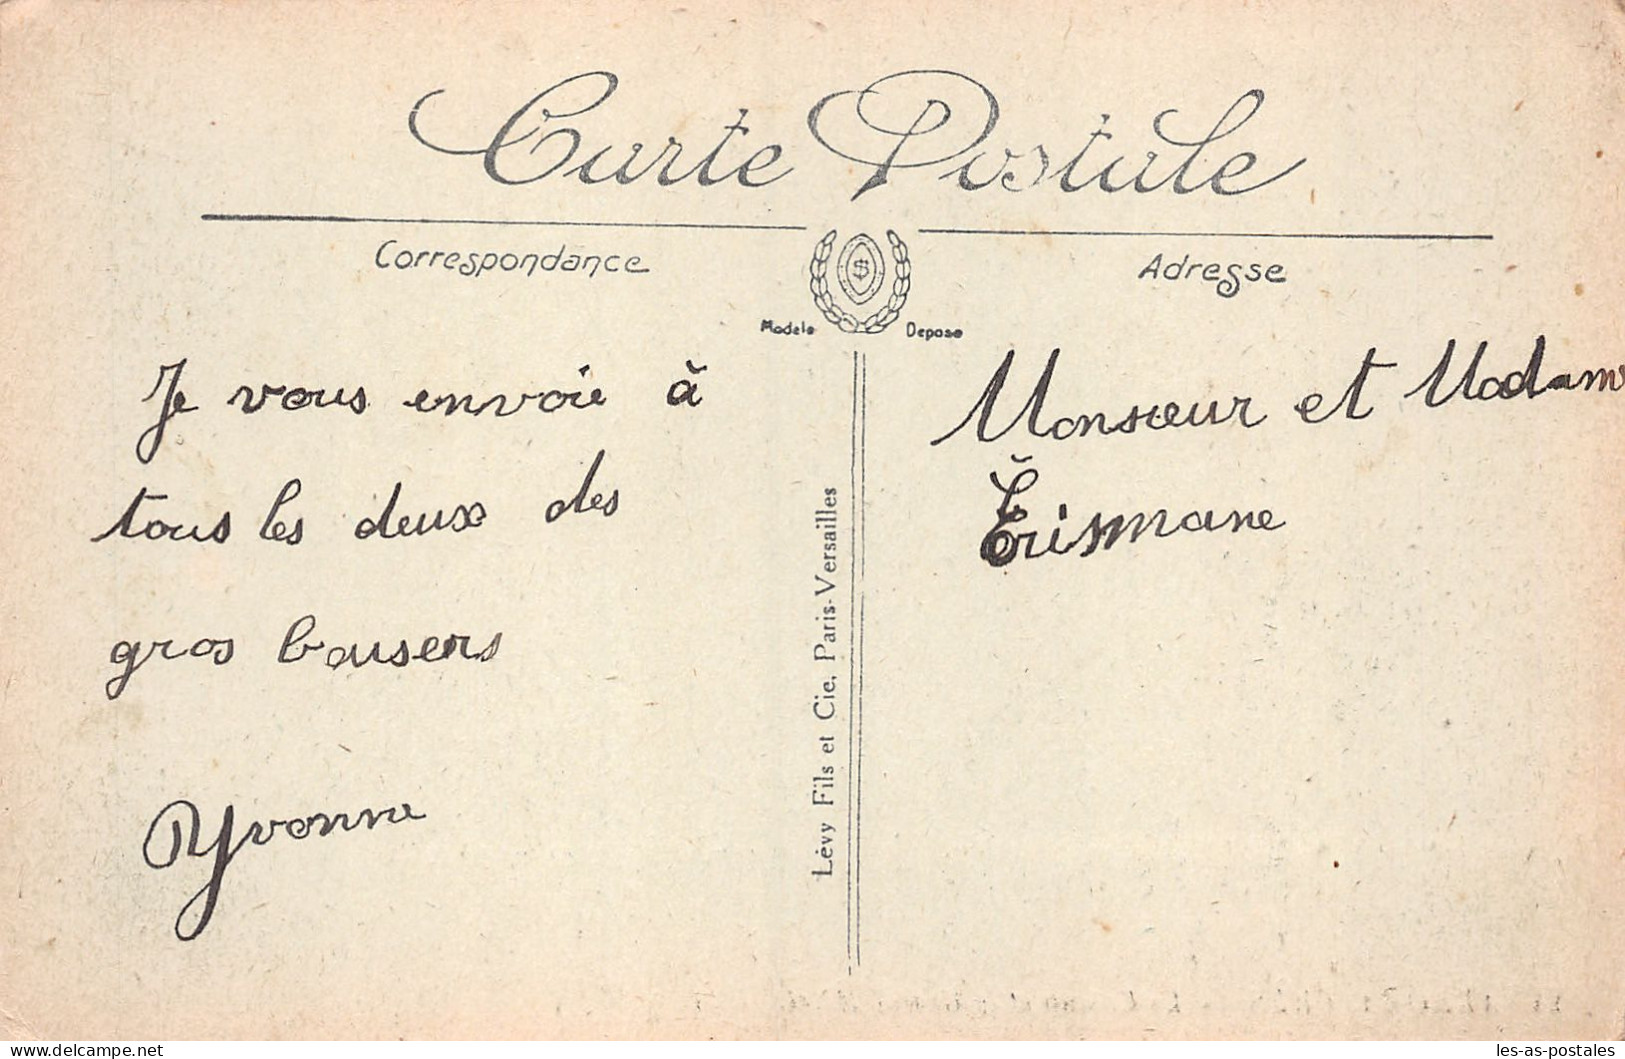 Carte Postale
Correspondance
Adresse
Modele Depose
Je vous envoie à
tous les deux des
gros baisers
Yvonne
Lévy Fils et Cie, Paris-Versailles
Monsieur et Madam
Erismane
delcampe.net
les-as-postales